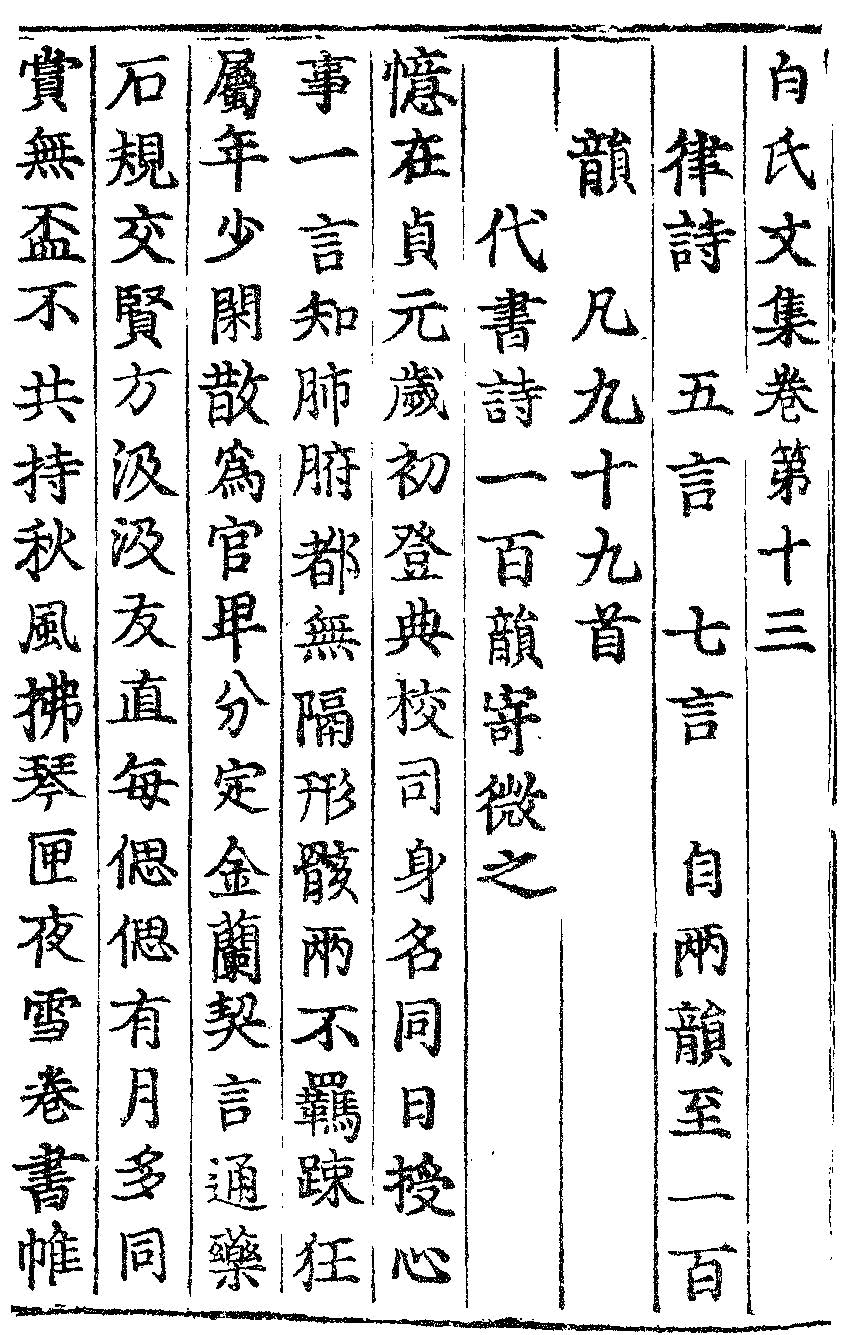 白氏文集巻第十三
律詩 五言 七言 自兩韻至一百
韻 凡九十九首
代書詩一百韻寄微之
憶在貞元歲初登典校司身名同日授心
事一言知肺腑都無隔形骸兩不羈踈狂
屬年少閑散爲官卑分定金蘭契言通藥
石規交賢方汲汲友直每偲偲有月多同
賞無盃不共持秋風拂琴匣夜雪巻書帷